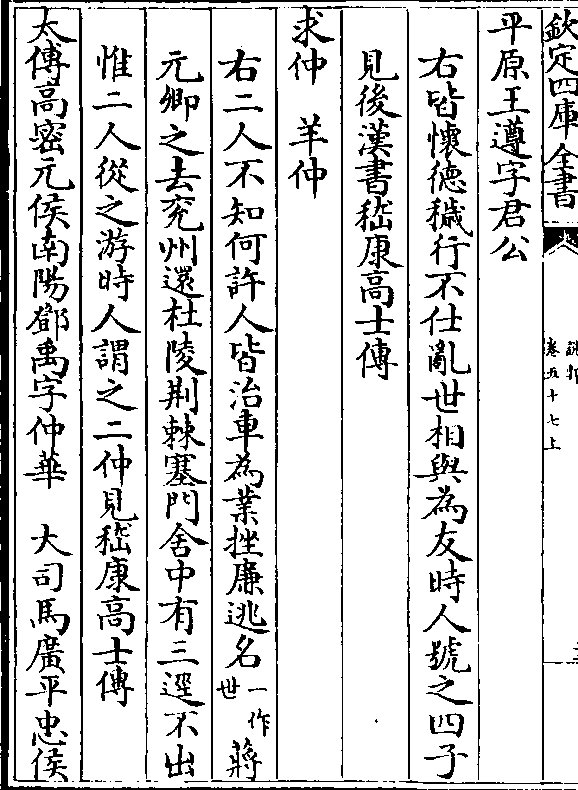 欽定四庫全書
卷五十七上
平原王遵字君公
右皆懷德穢行不仕亂世相與為友時人號之四子
見後漢書嵇康高士傳
求仲　羊仲
右二人不知何許人皆治車為業挫廉逃名一作世蔣
元卿之去兖州還杜陵荆棘塞門舍中有三逕不出
惟二人從之游時人謂之二仲見嵇康高士傳
太傅高密元侯南陽鄧禹字仲華　大司馬廣平忠侯